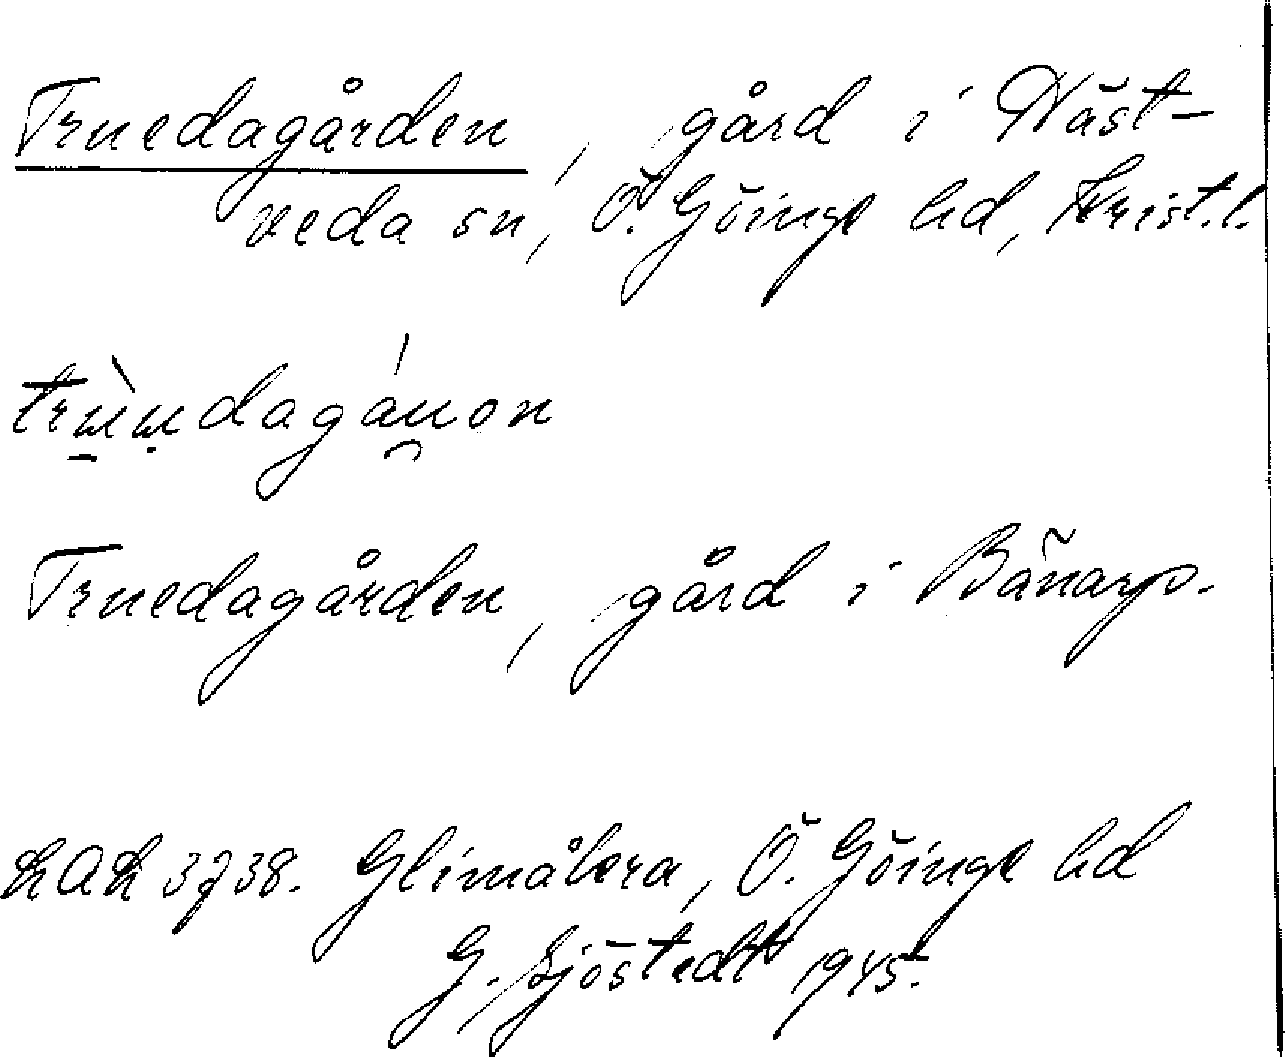 Truedagården, gård i Näst-
veda sn, Ö. Göinge hd, Krist. l.
Truedagården, gård i Bänarp.
LAL 3738. Glimåkra, Ö. Göinge hd
G. Sjöstedt 1945.